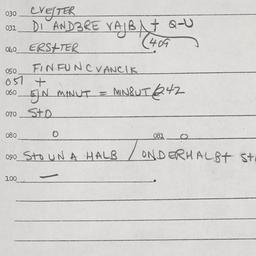 030 CVEJTER
031 DI AND3RE VAJB + S-U
(409
040 ERS+TER
050 FINFUNCVANCIK
051 +
060 EJN MINUT = MINBUT 242
070 StD
080 0 082 0
090 StOUN A HALB / ONDERHALBt St
100 —